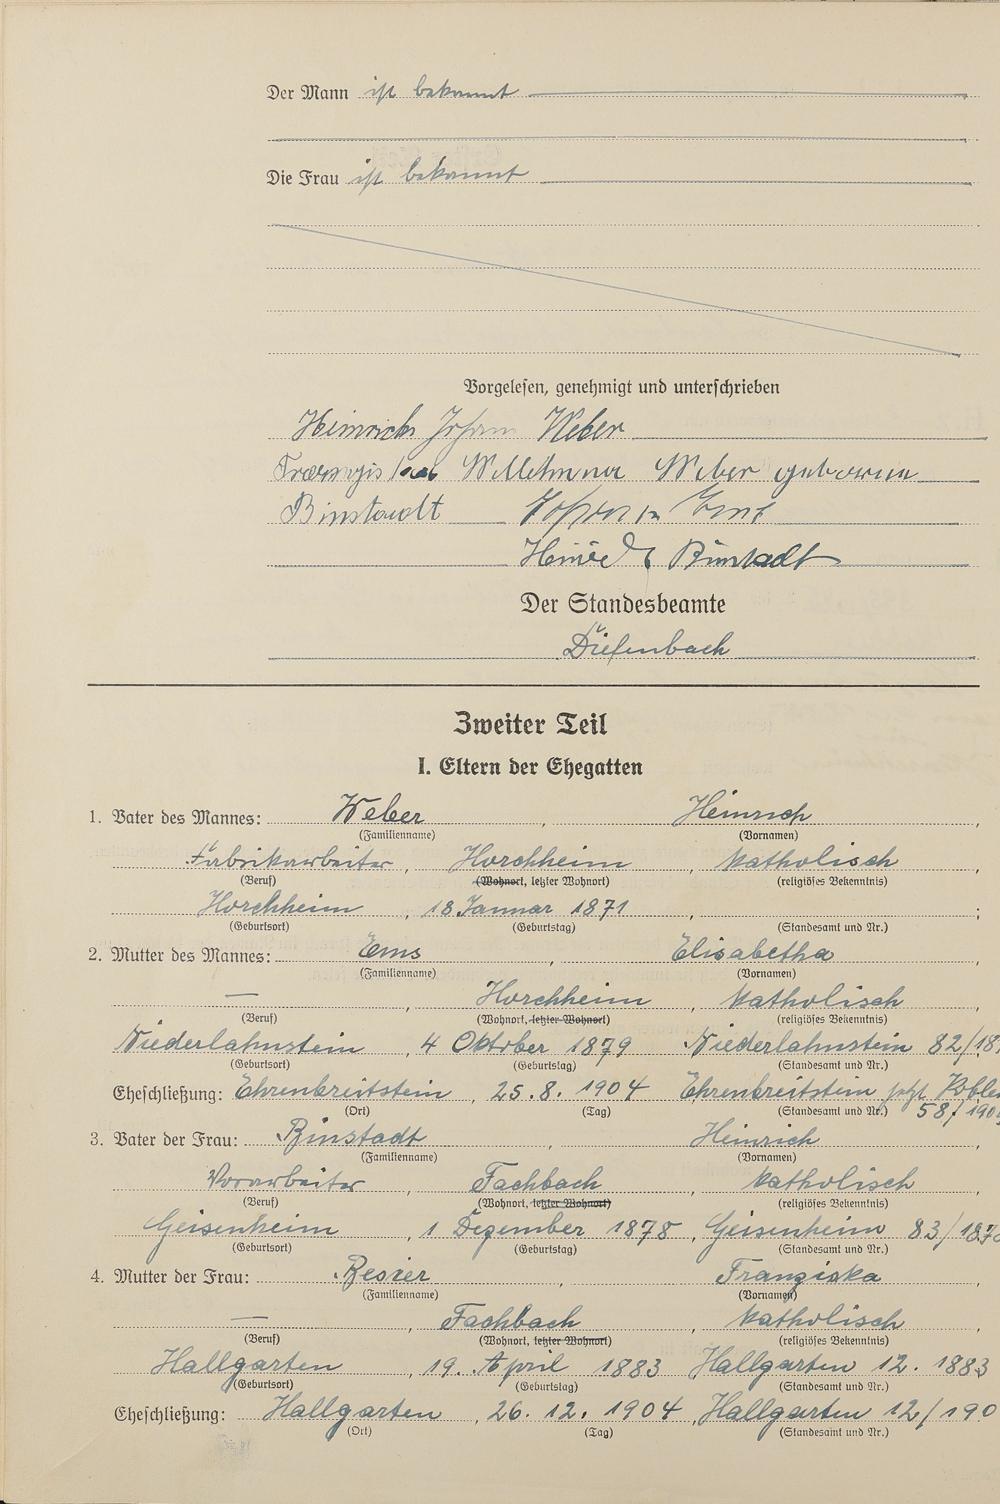 Der Mann ist bekannt
Die Frau ist bekannt
Vorgelesen, genehmigt und unterschrieben
Heinrich Johann Weber
Weber geborene
Binstadt
Binstadt
Der Standesbeamte
Diefenbach
Zweiter Teil
I. Eltern der Ehegatten
1. Vater des Mannes: Weber, Heinrich,
(Familienname) (Vornamen)
Fabrikarbeiter, Horchheim, katholisch
(Beruf) (Wohnort, letzter Wohnort) (religiöses Bekenntnis)
Horchheim, 18 Januar 1871, ;
(Geburtsort) (Geburtstag) (Standesamt und Nr.)
2. Mutter des Mannes: Ems, Elisabetha,
(Familienname) (Vornamen)
—, Horchheim, katholisch,
(Beruf) (Wohnort, letzter Wohnort) (religiöses Bekenntnis)
Niederlahnstein, 4 Oktober 1879, Niederlahnstein 82/187
(Geburtsort) (Geburtstag) (Standesamt und Nr.)
Eheschließung: Ehrenbreitstein, 25.8.1904, Ehrenbreitstein jetzt Koblen
(Ort) (Tag) (Standesamt und Nr.) 58/190
3. Vater der Frau: Binstadt, Heinrich,
(Familienname) (Vornamen)
Vorarbeiter, Fachbach, katholisch,
(Beruf) (Wohnort, letzter Wohnort) (religiöses Bekenntnis)
Geisenheim, 1 Dezember 1878, Geisenheim 83/187
(Geburtsort) (Geburtstag) (Standesamt und Nr.)
4. Mutter der Frau: Franziska,
(Familienname) (Vornamen)
—, Fachbach, katholisch,
(Beruf) (Wohnort, letzter Wohnort) (religiöses Bekenntnis)
Hallgarten, 19. April 1883, Hallgarten 12. 1883
(Geburtsort) (Geburtstag) (Standesamt und Nr.)
Eheschließung: Hallgarten, 26.12.1904, Hallgarten 12/190
(Ort) (Tag) (Standesamt und Nr.)